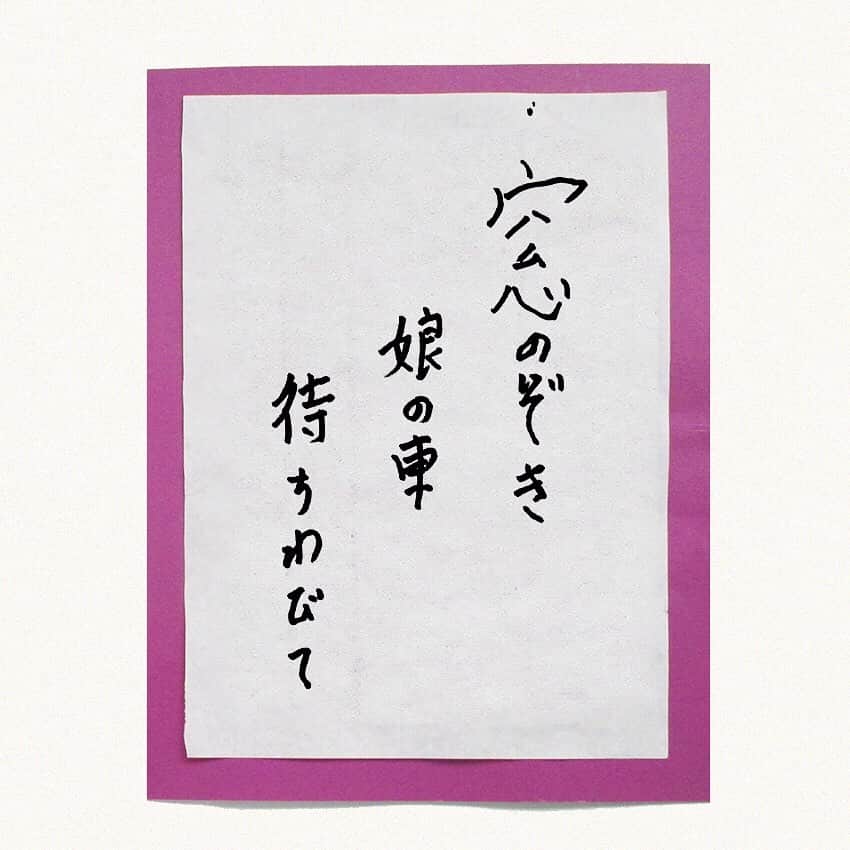 窓のぞき
娘の車
待ちわびて